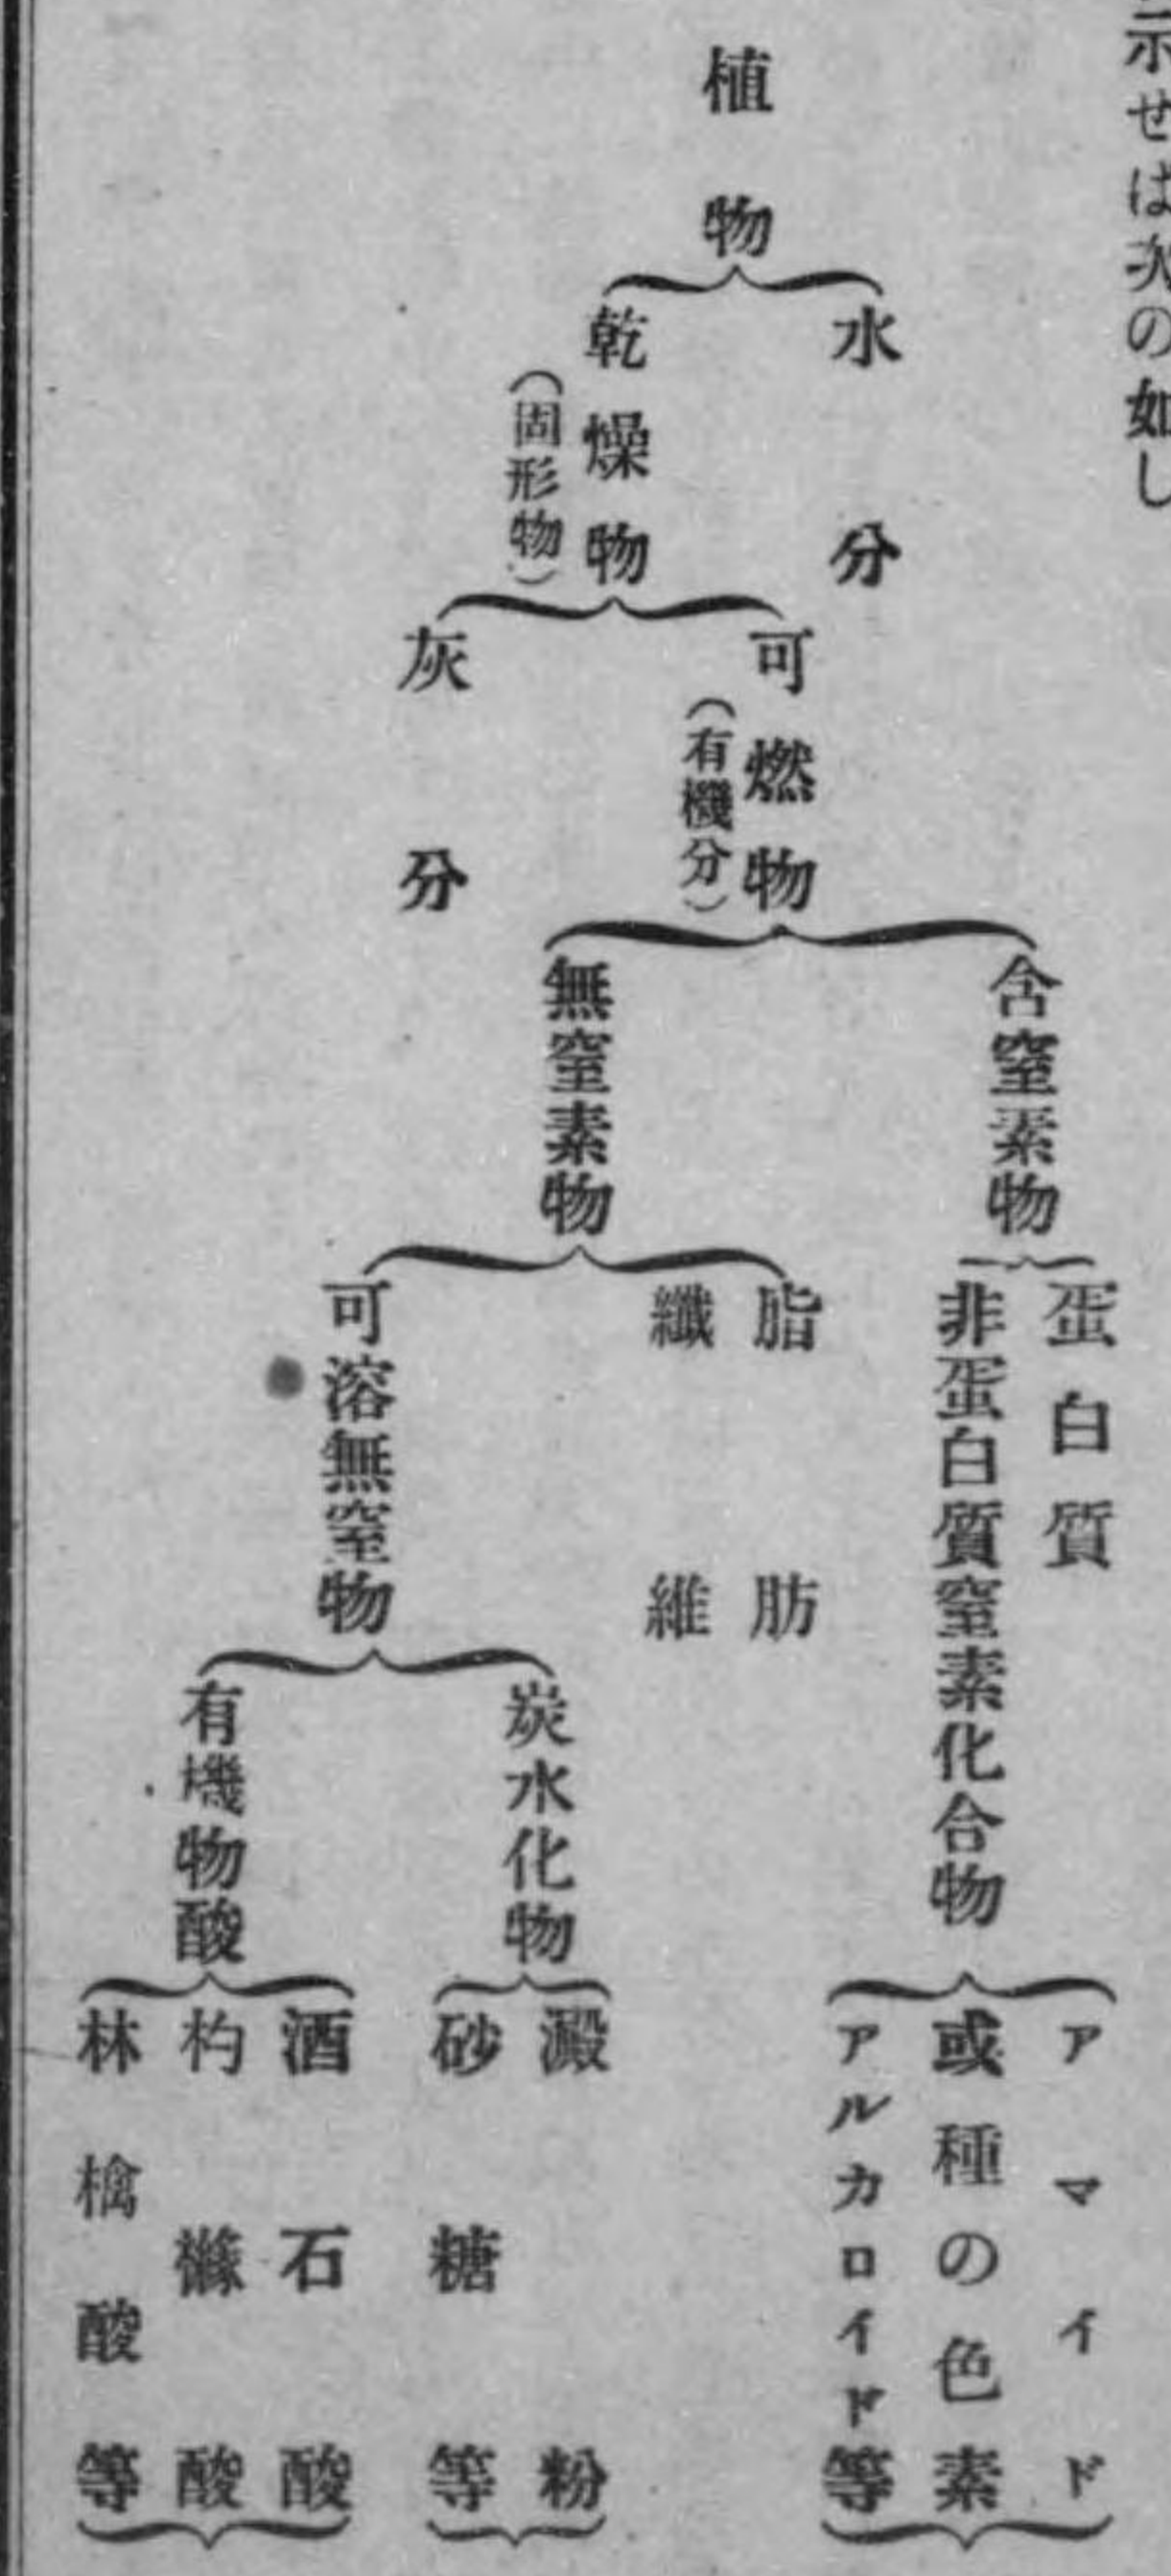 示せば次の如し
植物
水分
乾燥物
(固形物)
可燃物
(有機分)
灰分
含窒素物
無窒素物
蛋白質
非蛋白質窒素化合物
脂肪
纖維
可溶無窒物
炭水化物
有機物酸
アマイド
或種の色素
アルカロイド等
澱粉
砂糖等
酒石酸
枸櫞酸
林檎酸等